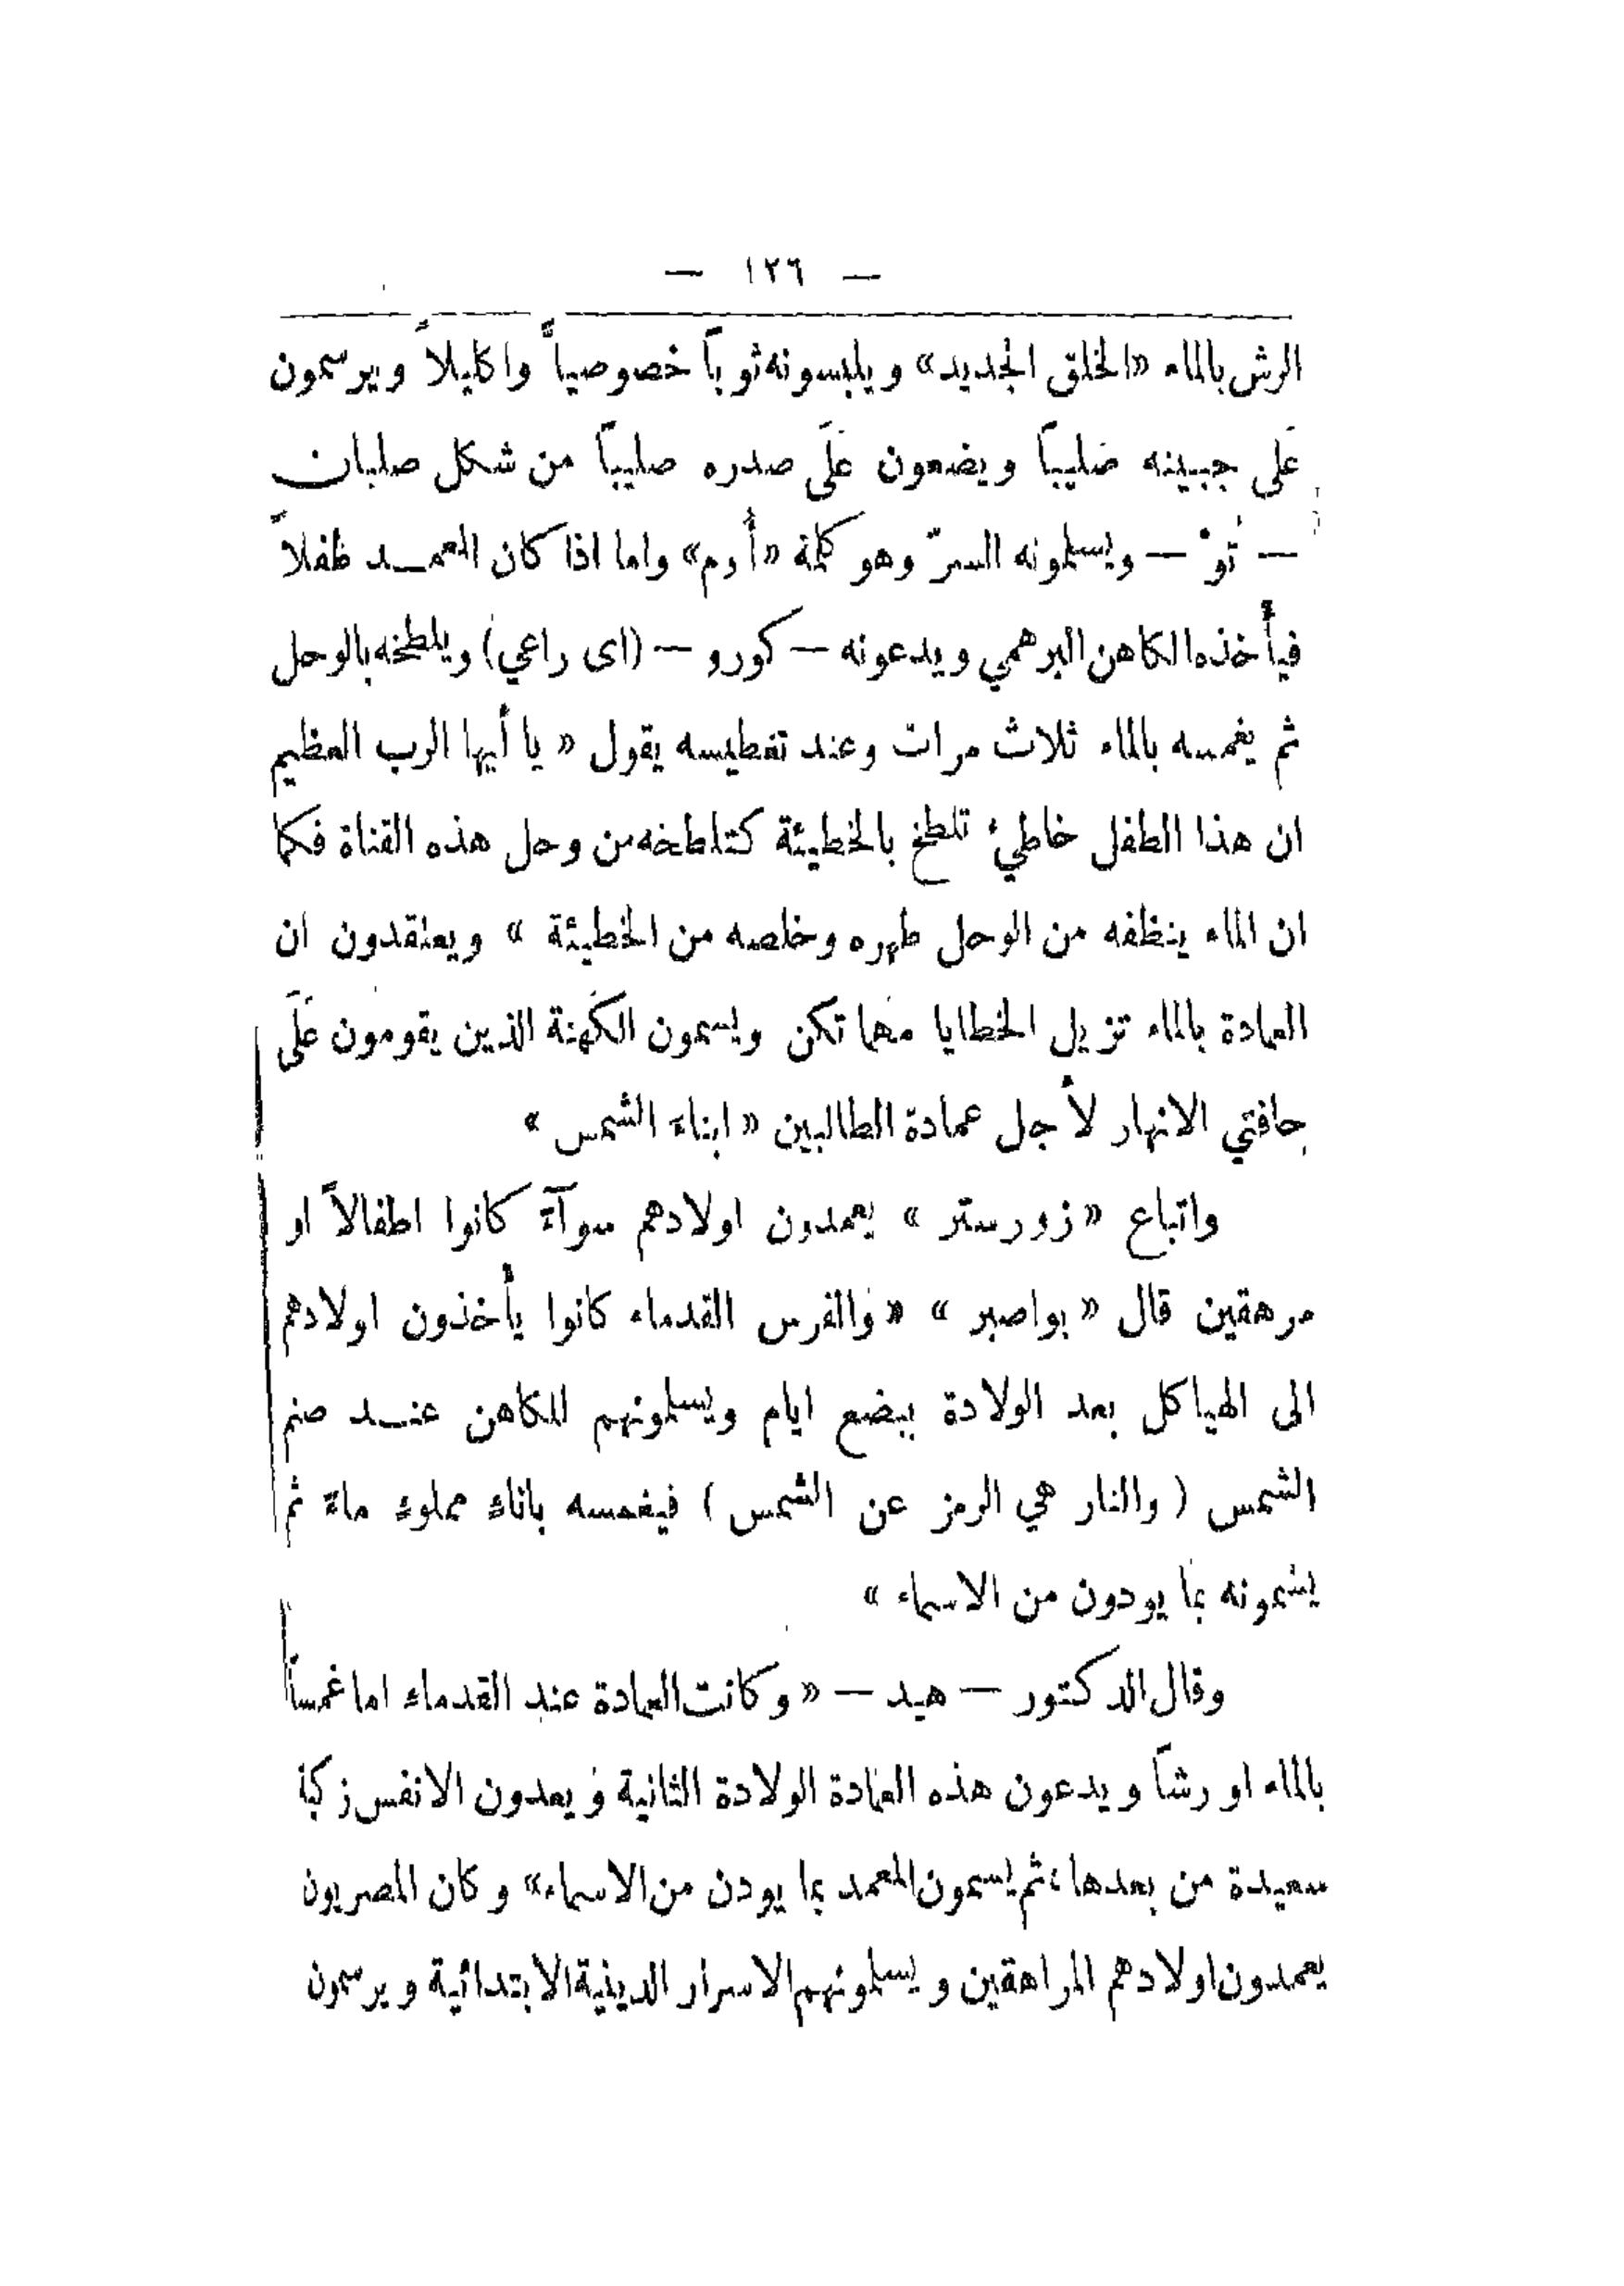 — ١٢٦ —
الرش بالماء «الخلق الجديد» ويلبسونه ثوباً خصوصياً واكليلاً ويرسمون
عَلَى جبينه صليباً ويضعون عَلَى صدره صليباً من شكل صلبان
— تو — ويسلمونه السرّ وهو كلمة «أُ وم» واما اذا كان المعمد طفلاً
فيأخذه الكاهن البرهمي ويدعونه — كورو — (اى راعي) ويلطخه بالوحل
ثم يغمسه بالماء ثلاث مرات وعند تغطيسه يقول « يا أيها الرب العظيم
ان هذا الطفل خاطيء تلطخ بالخطيئة كتلطخه من وحل هذه القناة فكما
ان الماء ينظفه من الوحل طهره وخلصه من الخطيئة » ويعتقدون ان
العمادة بالماء تزيل الخطايا مهما تكن ويسمون الكهنة الذين يقومون عَلَى
حافتي الانهار لأجل عمادة الطالبين « ابناء الشمس »
واتباع « زورستر » يعمدون اولادهم سوآءً كانوا اطفالاً او
مرهقين قال « بواصبر » « والفرس القدماء كانوا يأخذون اولادهم
الى الهياكل بعد الولادة ببضع ايام ويسلمونهم للكاهن عند صنم
الشمس ( والنار هي الرمز عن الشمس ) فيغمسه باناءٍ مملوءٍ ماءً ثم
يسمونه بما يودون من الاسماء »
وقال الدكتور — هيد — « وكانت العمادة عند القدماء اما غمساً
بالماء او رشاً ويدعون هذه العمادة الولادة الثانية ويعدون الانفس زكية
سعيدة من بعدها ، ثم يسمون المعمد بما يودن من الاسماء» وكان المصريون
يعمدون اولادهم المراهقين ويسلمونهم الاسرار الدينية الابتدائية ويرسمون